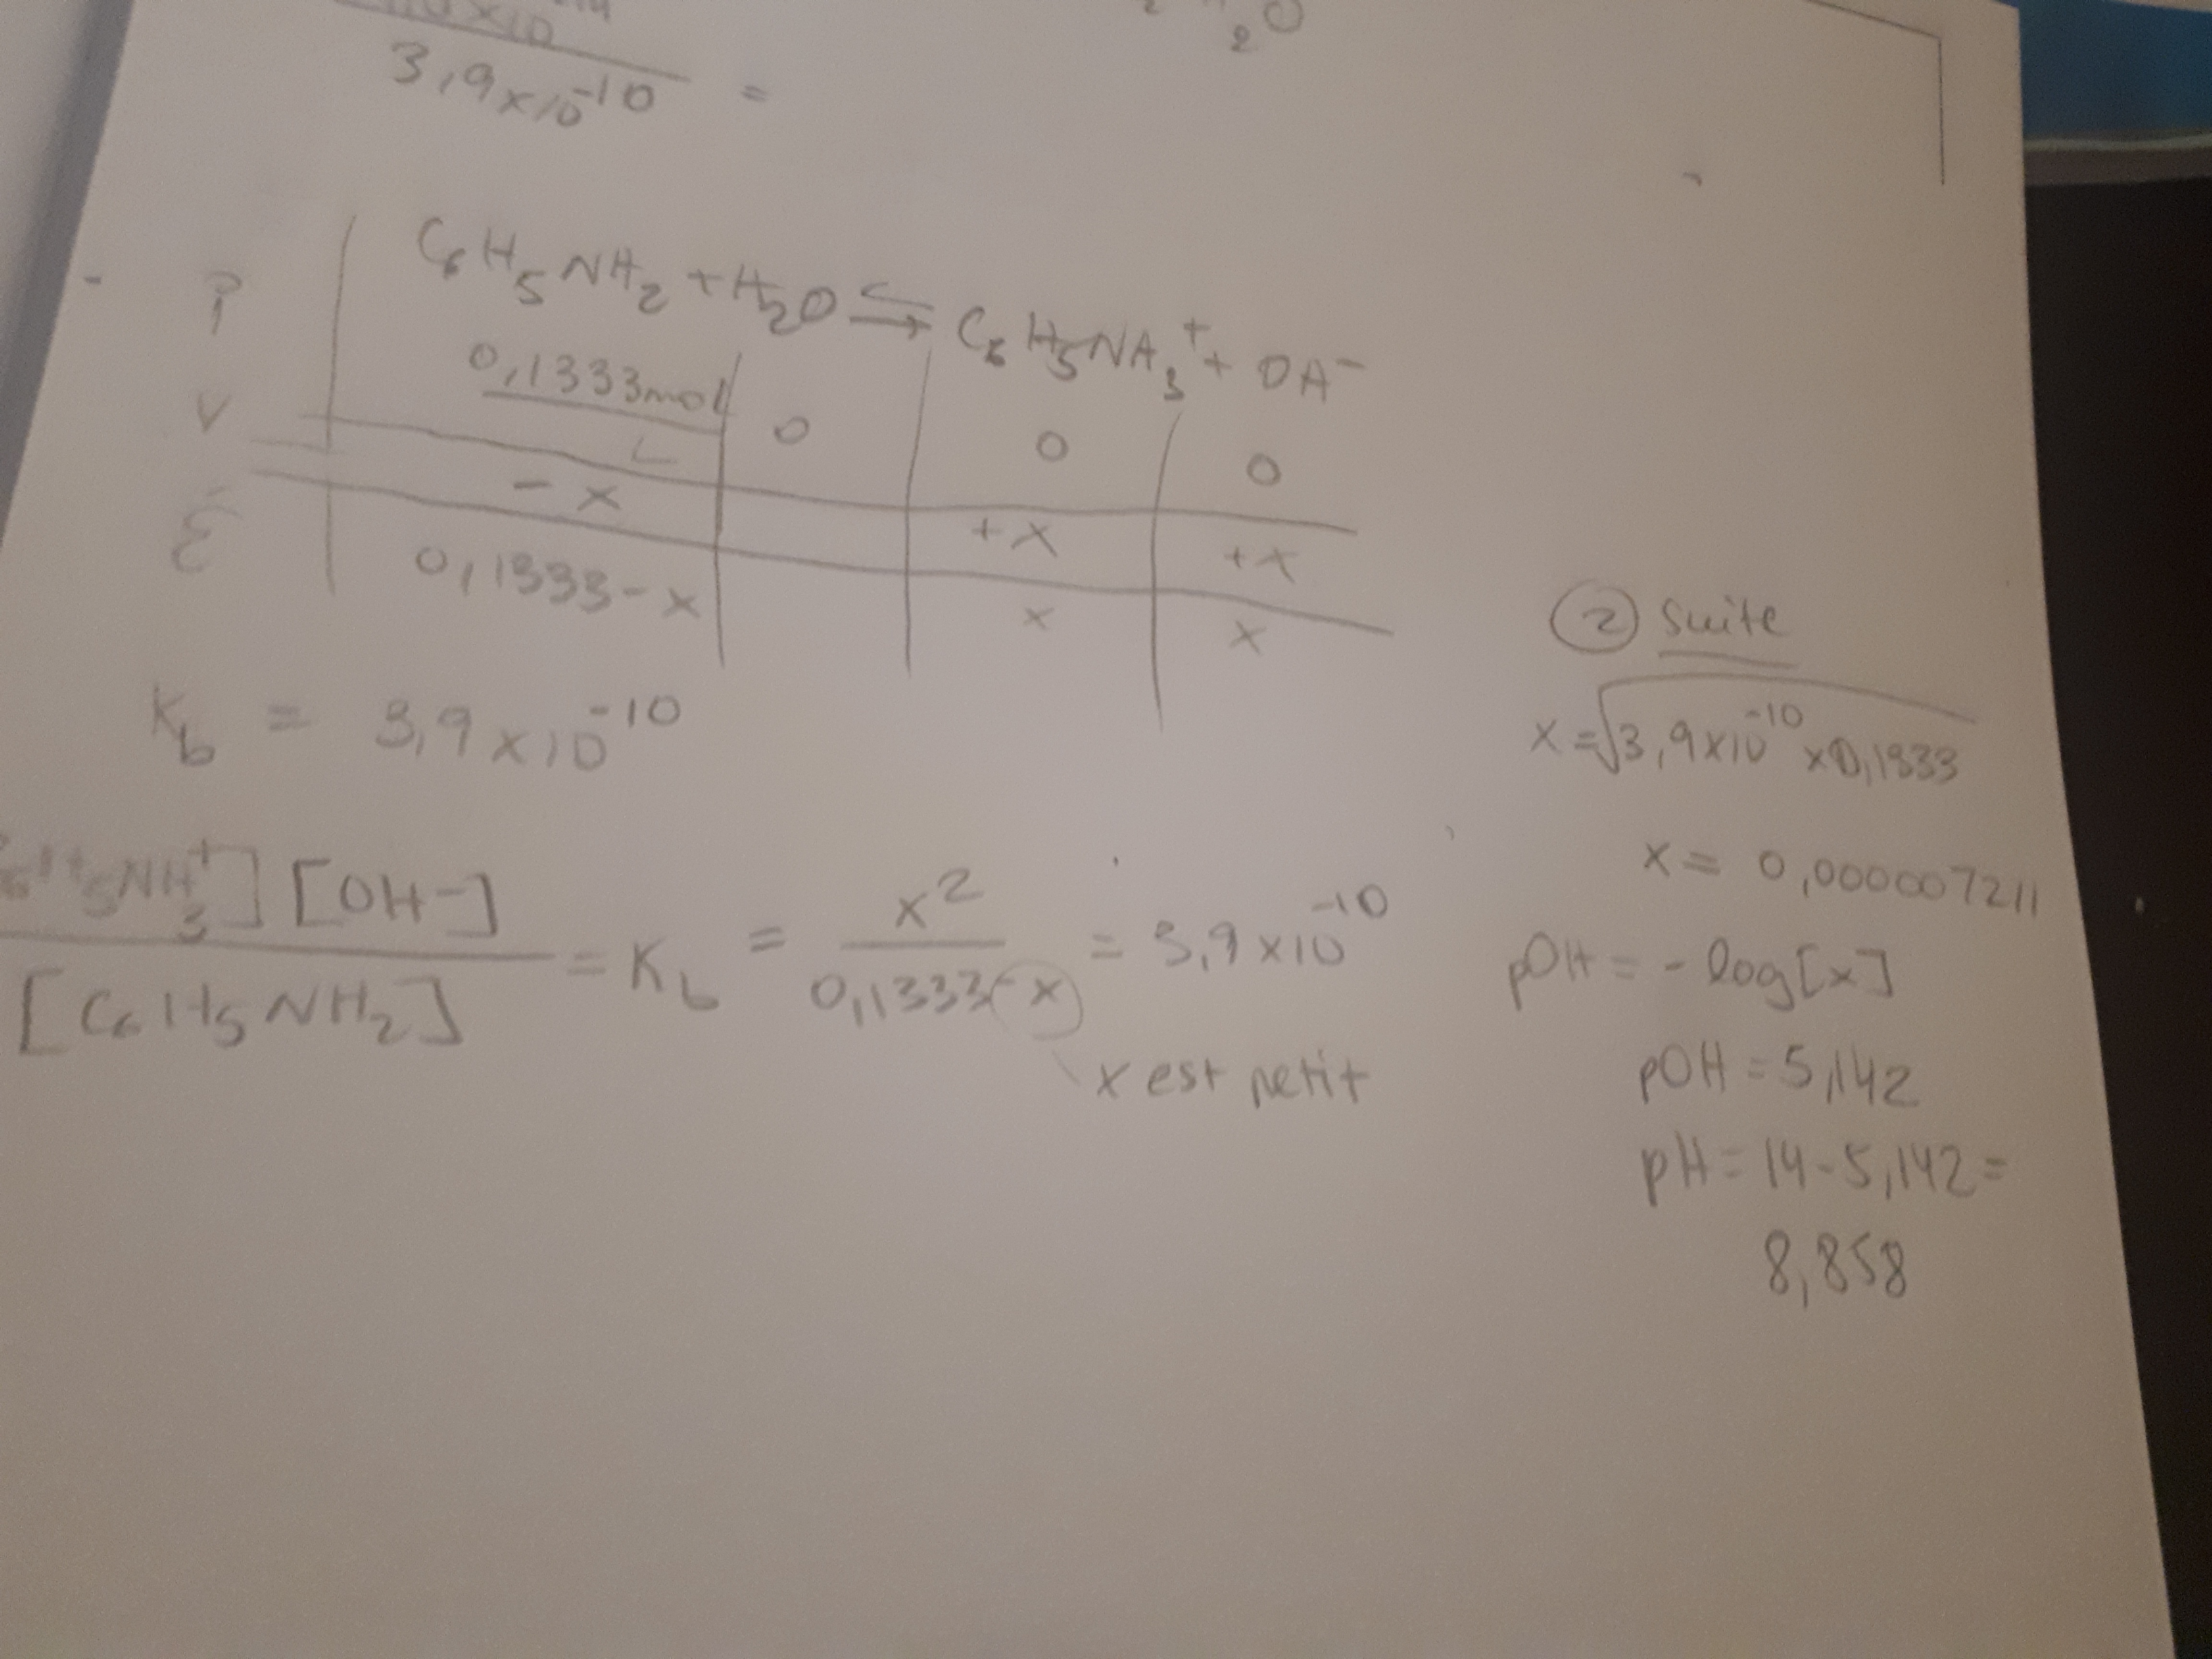 3,9 x 10^-10 =
2 O
C6H5NH2 + H2O ⇌ C6H5NH3+ + OH-
i 0,1333 mol/L 0 0 0
V - x + x + x
É 0,1333 - x x x
Kb = 3,9 x 10^-10
[C6H5NH3+] [OH-] / [C6H5NH2] = Kb = x^2 / 0,1333 - x = 3,9 x 10^-10
x est petit
② suite
x = √3,9 x 10^-10 x 0,1333
x = 0,000007211
pOH = - log[x]
pOH = 5,142
pH = 14 - 5,142 =
8,858